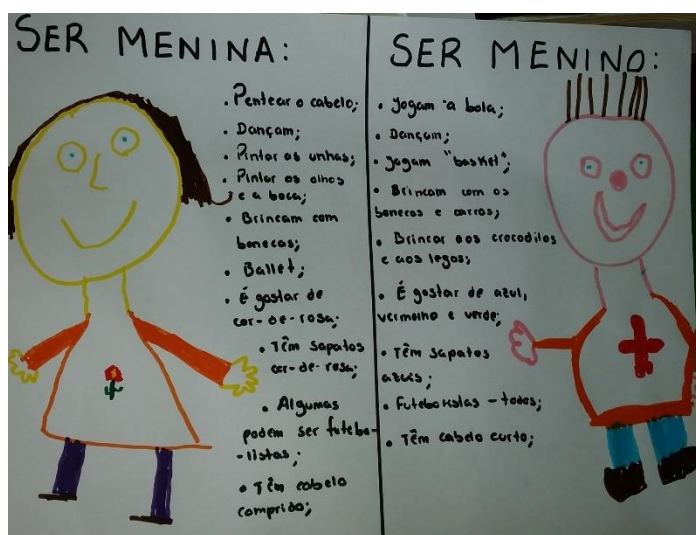 SER MENINA:
• Pentear o cabelo;
• Dançam;
• Pintar as unhas;
• Pintar os olhos
e a boca;
• Brincam com
bonecas;
• Ballet;
• É gostar de
cor-de-rosa;
• Têm sapatos
cor-de-rosa;
• Algumas
podem ser futebo-
-listas;
• Têm cabelo
comprido;
SER MENINO:
• Jogam à bola;
• Dançam;
• Jogam "basket";
• Brincam com os
bonecos e carros;
• Brincar aos crocodilos
e aos legos;
• É gostar de azul,
vermelho e verde;
• Têm sapatos
azuis;
• Futebolistas - todos;
• Têm cabelo curto;